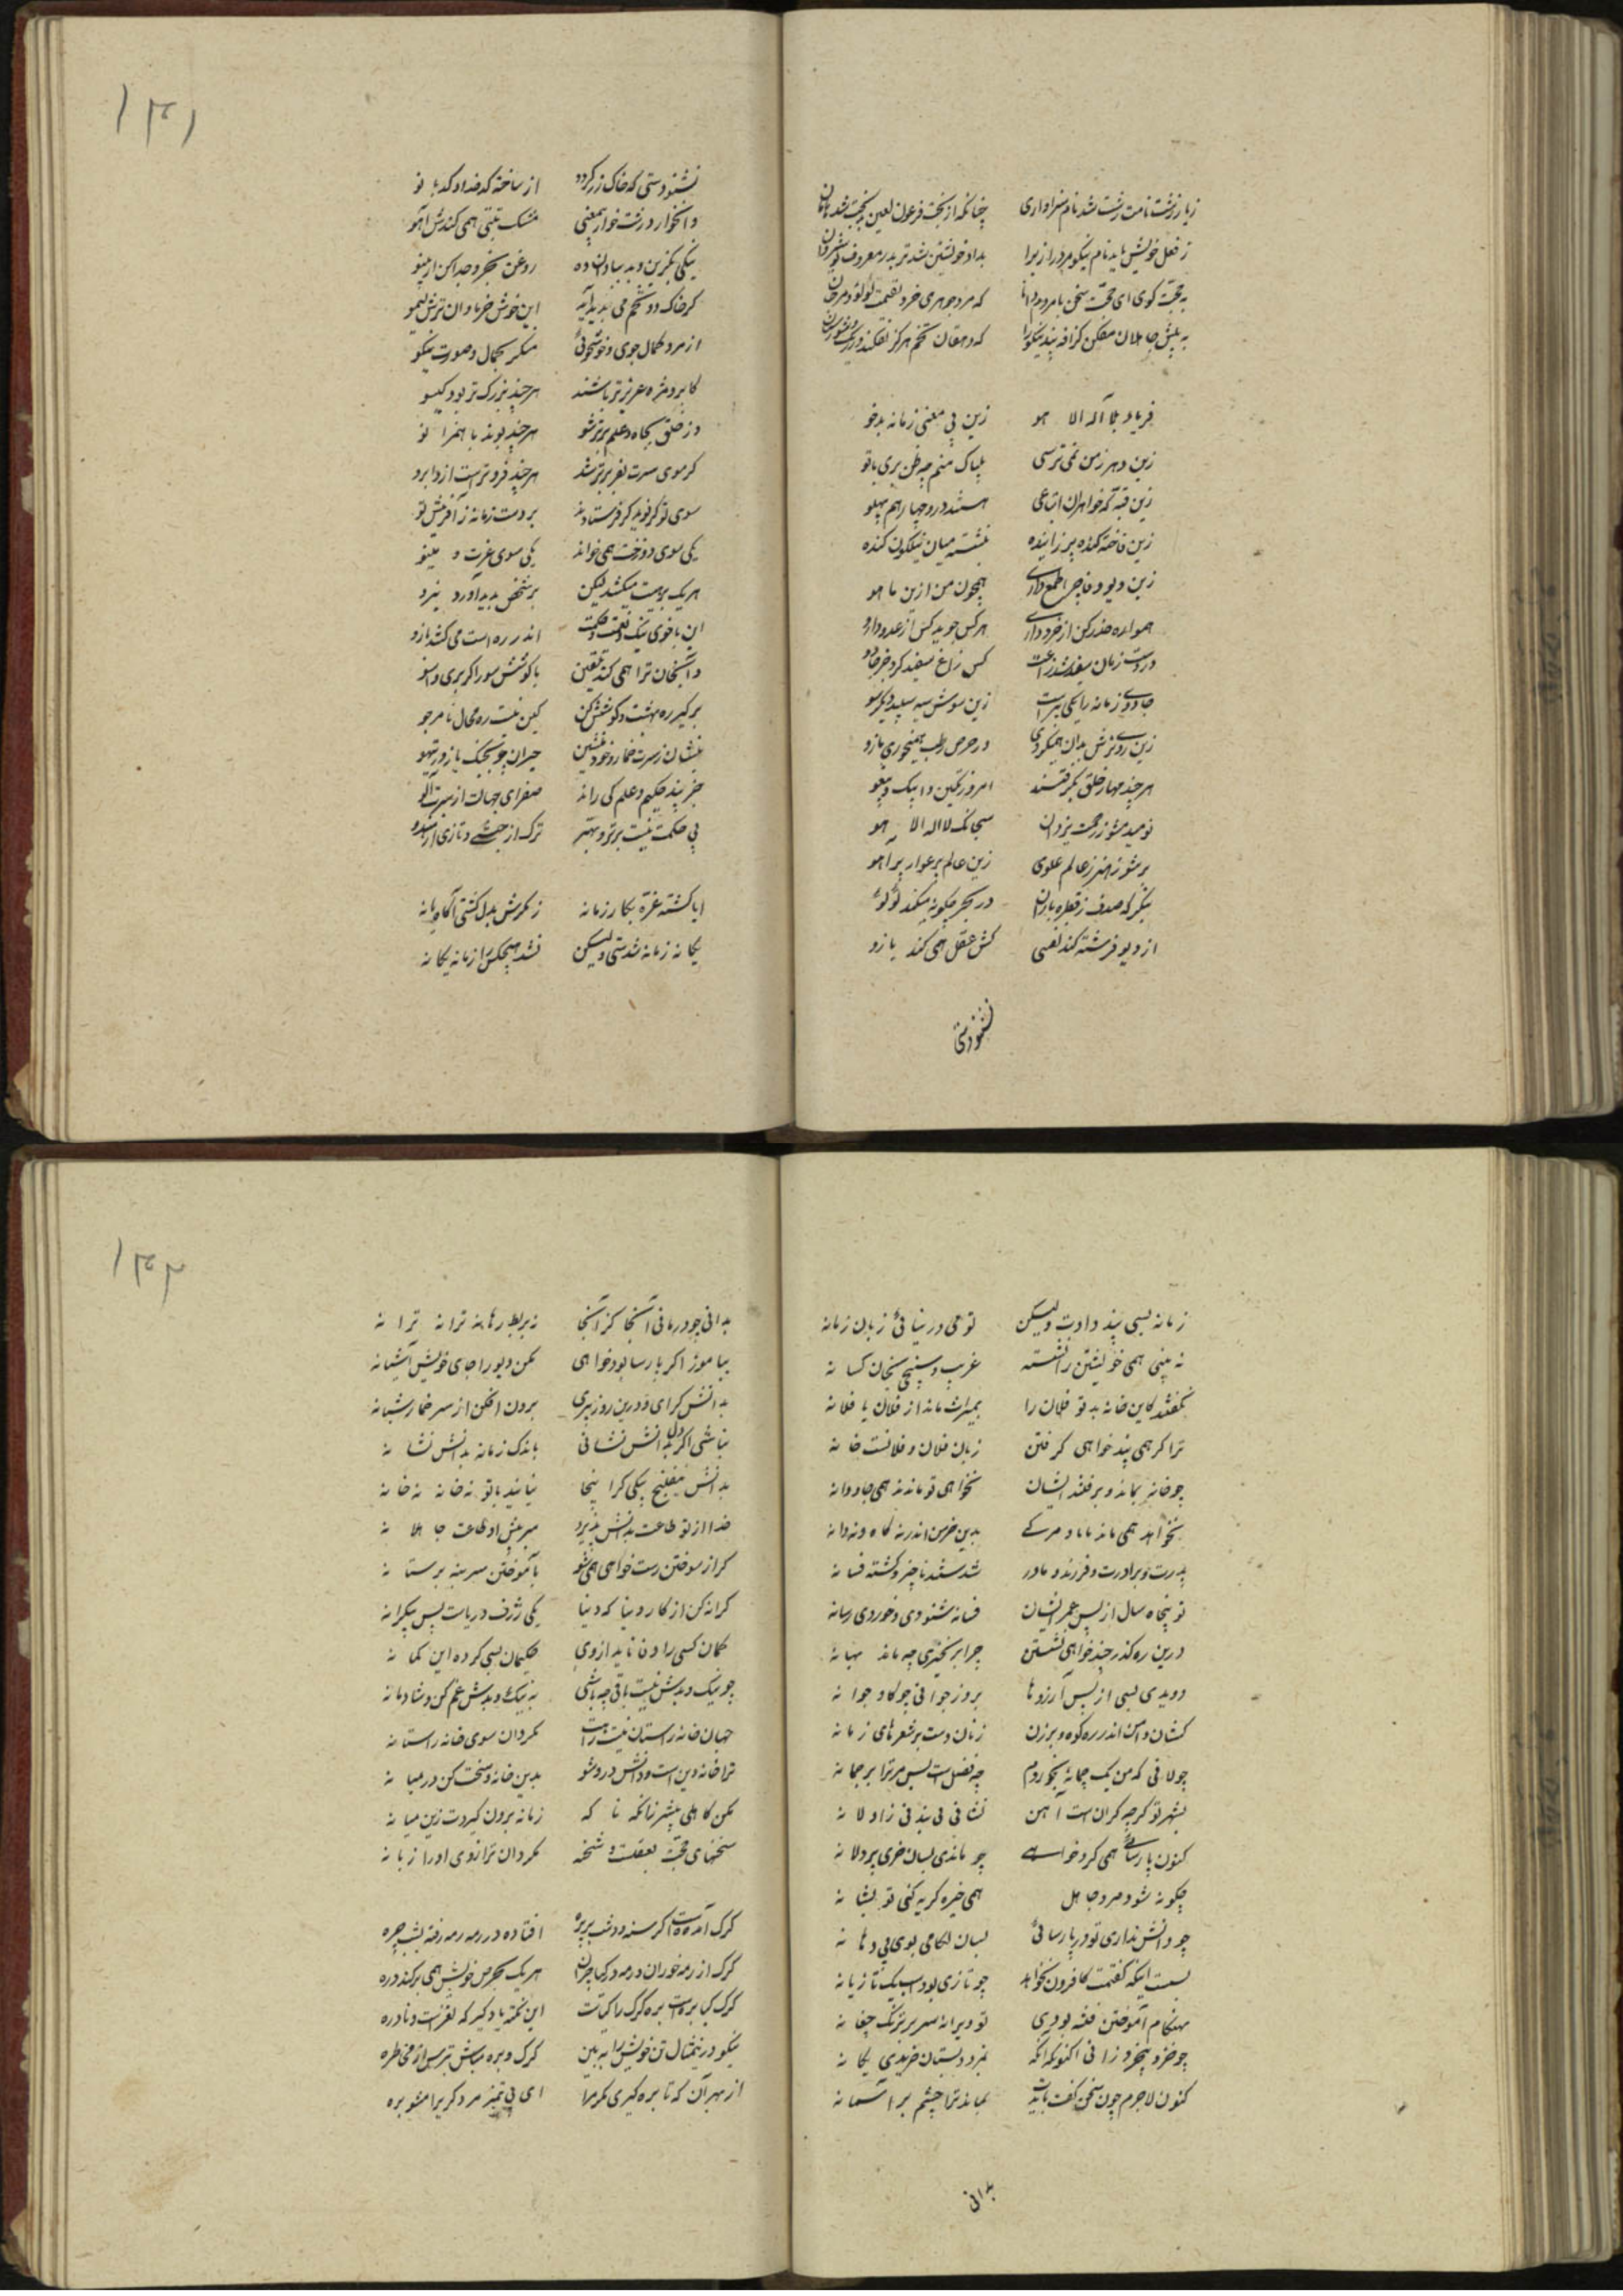 ز یار زشت نامت زشت شد نام سزاواری چنانکه از بخت فرعون لعین بدبخت شد هامان
ز فعل خویش باید نام نیکو مرد را زیرا بداد خویشتن شد تر بدر معروف نوشروان
به حجت کوی ای حجت سخن با مردم دانا که مرد جوهری خرد بقیمت لؤلؤ و مرجان
به پیش جاهلان مفکن کزافه پند نیکو را که دهقان تخم هرکز نفکند در ریک و شورستان
فریاد بلا آله الا هو زین بی معنی زمانه بدخو
زین دهر ز من نمی ترسی بیباک منم چه ظن بری با تو
زین قبه که خواهران انباعی هستند درو چهار هم پهلو
زین فاخته کنده پیر زاینده بنشسته میان نیلکون کنده
زین دیو وفا چرا طمع داری همچون من ازین ما هو
همواره حذر کن از خرد داری هرکس جوید کس از عدو دارو
در دست زمان سفید شد زاغت کس زاغ سفید کرد جز جادو
جادوی زمانه را یکی پر است زین سوش سیه سپید دیکر سو
زین روی ترش بدان همیکردی در حرص رطب همیخوری مازو
هر چند مهار خلق بکرفتند امروز تکین و ایبک و پیغو
نومید مشو ز رحمت یزدان سبحانک لا اله الا هو
بر شو ز هنر ز عالم علوی زین عالم پر عوار پر آهو
بنکر که صدف ز قطره باران در بحر چکونه میکند لؤلؤ
از دیو فرشته کند نفسی کش عقل همی کند بازو
نشنودستی
۱۳۱
نشنودستی که خاک زر کردد از ساخته کدخدا و کدبانو
و انکو خوار و زشت خوار بمعنی مشک تبتی همی کندش آهو
نیکی بکزین و بد بنادان ده روغن بخرد جدا کن از پینو
کز خاک دو تخم می پدید آید این خوش خرما و ان ترش لیمو
از مرد کمال جوی و خوشخوئی منکر بجمال و صورت نیکو
کابرو و مژه عزیزتر باشند هرچند بزرکتر بود کیسو
وز خلق بجاه و علم برتر شو هرچند بوند با همزانو
کز موی سرت بغز برتر شد هرچند فروتر است ازو ابرو
سوی تو کر نویدکر فرستادند بر دست زمانه ز آفرینش تو
یکی سوی دوزخت همی خواند یکی سوی عزت و مینو
هریک برهیت میکشد لیکن بر شخص پدید آورد نیرو
این با خوی نیک و نعمت و حکمت اندر ره راست می کشد بازو
و آنکهان ترا همی کند تلقین با کوشش مور و کربزی راسو
برکیر ره بهشت و کوشش کن کین نیست ره محال نامرجو
بنشان ز سرت خمار و خود منشین حیران چو بچنک باز در تیهو
جز پند حکیم و علم کی راند صفرای جهالت از سرت آلو
بی حکمت نیست برتر و بهتر ترک از حبشی و تازی از هندو
ایا کشته غره بکار زمانه ز مکرش بدل کشتی آکاه یا نه
یکانه زمانه شدستی ولیکن نشد هیچکس را زمانه یکانه
زمانه بسی پند دادت ولیکن تو می در نیابی زبان زمانه
نه بینی همی خویشتن را نشسته غریب و سپنجی بخان کسانه
نکفتند کاین خانه بد تو فلان را بمیراث ماند از فلان یا فلانه
ترا کر همی پند خواهی کرفتن زبان فلان و فلانست خانه
چو خانه بماند و برفتند ایشان نخواهی تو ماندن همی جاودانه
نخواهد همی ماند با باد مرکی بدین خرمن اندر نه کاه و نه دانه
پدرت و برادرت و فرزند و مادر شدستند ناچیز و کشته فسانه
تو پنجاه سال از پس عمر ایشان فسانه شنودی و خوردی رسانه
درین رهکذر چند خواهی نشستن چرا برنخیزی چه ماند بهانه
دویدی بسی از پس آرزوها بروز جوانی چو کاو جوانه
کشان دامن اندر ره کوه و برزن زنان دست بر شعرهای زمانه
چو لافی که من یک چمانه بخوردم چه فضل است پس مر ترا بر چمانه
بشهر تو کرچه کران است آهن نشائی بی بند بی زاولانه
کنون پارسائی همی کرد خواهی چو ماندی بسان خری پر دلانه
چکونه شود مرد جاهل همی خیره کریه کنی تو بشانه
چو دانش نداری تو در پارسائی بسان لکامی بوی بی دهانه
بسست اینکه کفتمت کافزون نخواهد چو تازی بود اسپ یک تازیانه
بهنکام آموختن فتنه بودی تو دیوانه سر بر ترنک چغانه
چو خر بی خرد زانی اکنون که انکه بمزد دبستان خریدی یکانه
کنون لاجرم چون سخن کفت بایدت بماند ترا چشم بر آسمانه
بدانی
۱۳۲
بدانی چو درمانی آنجا کز آنجا نه بربط رهاند نه ترا نه ترانه
بیاموز اکر پارسا بود خواهی مکن دیو را جای خویش آشیانه
بدانش کرای و درین روز پیری برون افکن از سر خمار شبانه
نباشی اکر دل بدانش نشانی باندک زمانه بدانش نشانه
بدانش بیلفنج نیکی کز اینجا نیایند با تو نه خانه نه خانه
خدا از تو طاعت بدانش پذیرد مبر پیش او طاعت جاهلانه
کر از سوختن رست خواهی همی شو بآموختن سر بنه بر ستانه
کرانه کن از کار دنیا که دنیا یکی ژرف دریاست بس بیکرانه
کمان کسی را وفا ناید از وی حکیمان بسی کرده این کمانه
چو نیک و بدش نیست باقی چه باشی به نیک و بدش غمکن و شادمانه
جهان خانه راستان نیست راهت بکردان سوی خانه راستانه
ترا خانه دین است و دانش درو شو بدین خانه و سخت کن در میانه
مکن کاهلی بیشتر زانکه ناکه زمانه برون کیردت زین میانه
سخنهای حجت بعقلست سخته مکردان ترازوی او را زبانه
کرک آمده است کرسنه و دشت پر بره افتاده در رمه رمه رفته بشب چره
کرک از رمه خوران و رمه در کیا چران هریک بحرص خویش همی پر کند دره
کرک کیا بره است و بره کرک را کیاست این نکته یاد کیر که نغز است و نادره
بنکو در ینمثال تن خویش را ببین کرک و بره مباش بترس از مخاطره
از بهر آن که تا بره کیری مکر مرا ای بی تمیز مرد کریرا مشو بره